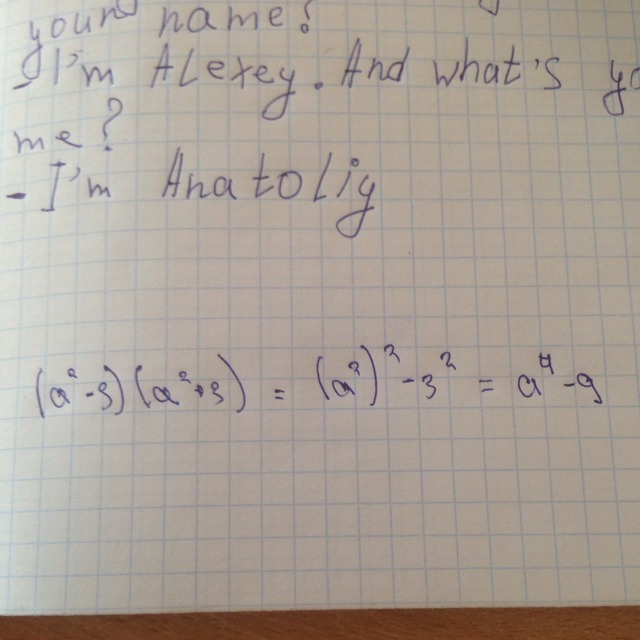 your name?
- I'm Alexey. And what's yo
me?
- I'm Anatoliy
(a² - 3)(a² + 3) = (a²)² - 3² = a⁴ - 9